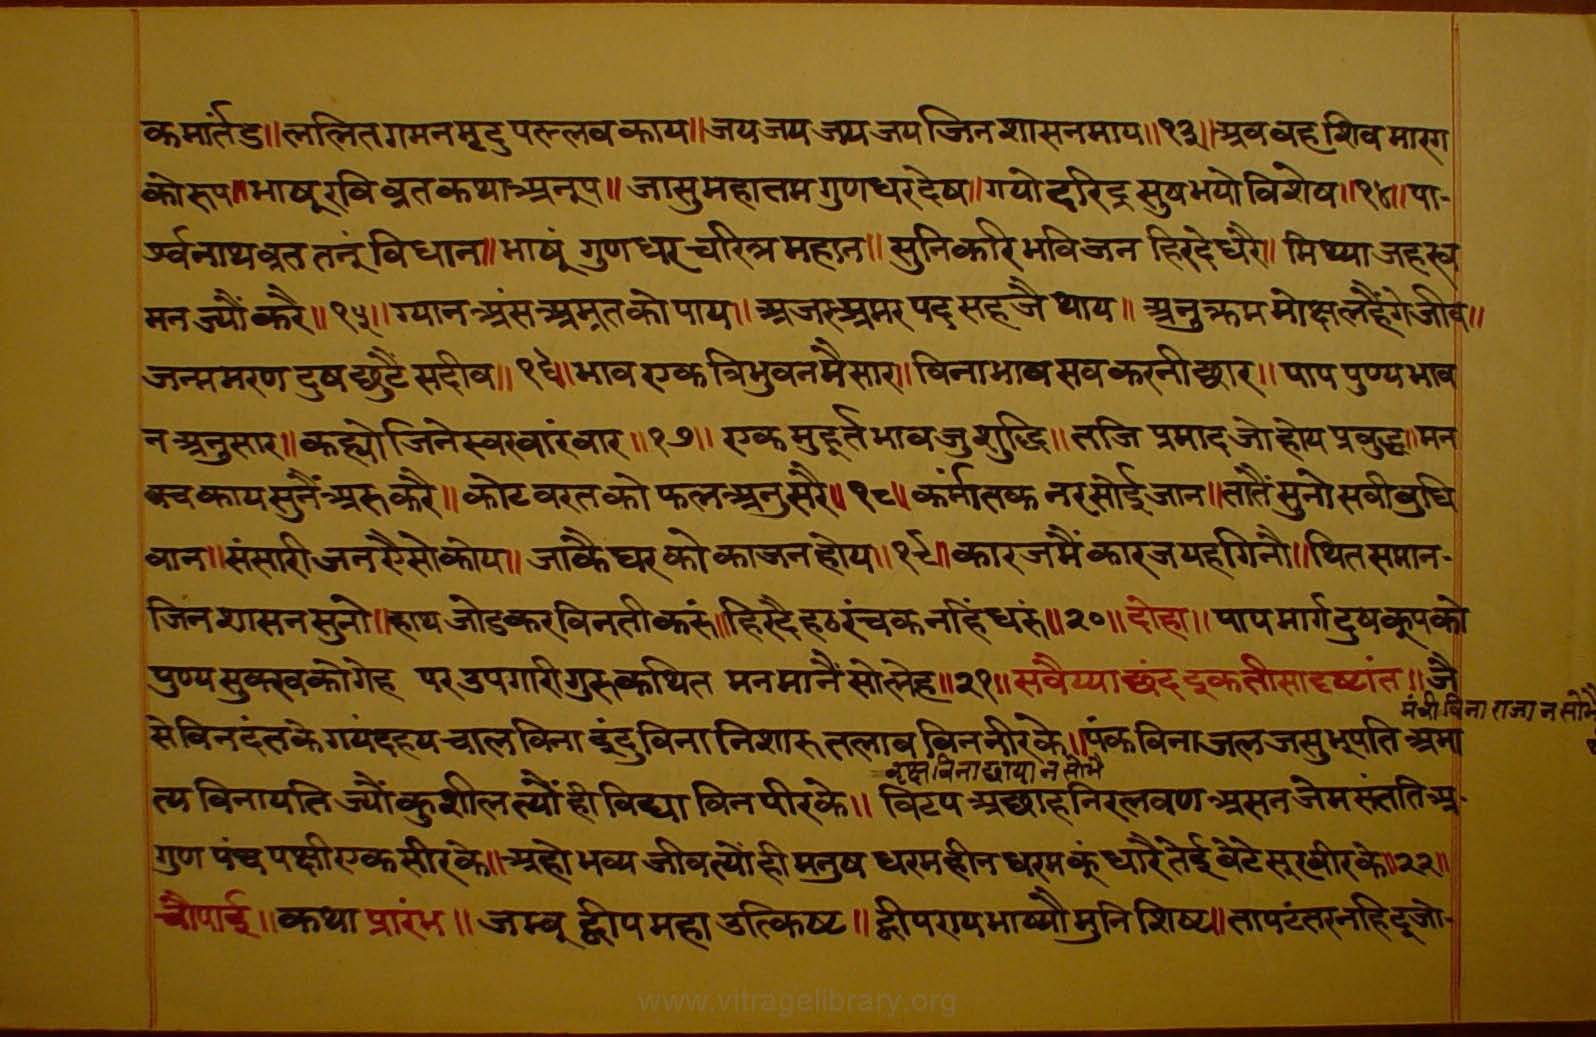 कमार्तंड॥ ललित गमन मृदु पल्लव काय॥ जय जय जय जय जिन शासन माय॥१३॥ अव वह शिव मारग
को रूप॥ भाषू रवि व्रत कथा अनूप॥ जासु महातम गुणधर देष॥ गयो दरिद्र सुष भयो विशेष॥१४॥ पा-
र्श्वनाथ व्रत तनूं विधान॥ भाषूं गुणधर चरित्र महान॥ सुनि करि भविजन हिरदे धरै॥ मिथ्या जहर
मन ज्यौं करै॥१५॥ ग्यान अंस अमृत को पाय॥ अजर अमर पद सहजै थाय॥ अनुक्रम मोक्ष लहैंगे जीव॥
जन्म मरण दुष छुटैं सदीव॥१६॥ भाव एक त्रिभुवन मै सार॥ विना भाव सव करनी छार॥ पाप पुण्य भाव
न अनुसार॥ कह्यो जिनेस्वर वारंवार॥१७॥ एक मुहूर्त भाव जु शुद्धि॥ तजि प्रमाद जो होय प्रवुद्ध॥ मन
वच काय सुनैं अरु करै॥ कोट वरत को फल अनुसरै॥१८॥ कर्मांतक नर सोई जान॥ तातैं सुनो सवी वुधि
वान॥ संसारी जन एैसो कोय॥ जाकै घर को काज न होय॥१९॥ कारज मैं कारज यह गिनौ॥ थित समान-
जिन शासन सुनो॥ हाथ जोड कर विनती करूं॥ हिरदै हठ रंचक नहिं धरूं॥२०॥ दोहा॥ पाप मार्ग दुष कूप को
पुण्य सुक्ख को गेह पर उपगारी गुरु कथित मन मानैं सो लेह॥२१॥ सवैय्या छंद इकतीसा दृष्टांत॥ जै
मंत्री विना राजा न सोभै
से विन दंत के गयंद हय चाल विना इंदु विना निशा रु तलाव विन नीर के॥ पंक विना जलज सु भूपति अमा
वृक्ष विना छाया न सोभै
त्य विना यति ज्यौं कुशील त्यौं ही विद्या विन पीर के॥ विटप अछाह निरलवण असन जेम संतति अ-
गुण पंच पक्षी एक सीर के॥ अहो भव्य जीव त्यों ही मनुष धरम हीन धरम कूं धारै तेई वेटे सूरवीर के॥२२॥
चौपाई॥ कथा प्रारंभ॥ जम्बू द्वीप महा उत्किष्ट॥ द्वीपराय भाष्यौ मुनि शिष्य॥ ता पटंतर नहि दूजो-
www.vitragelibrary.org